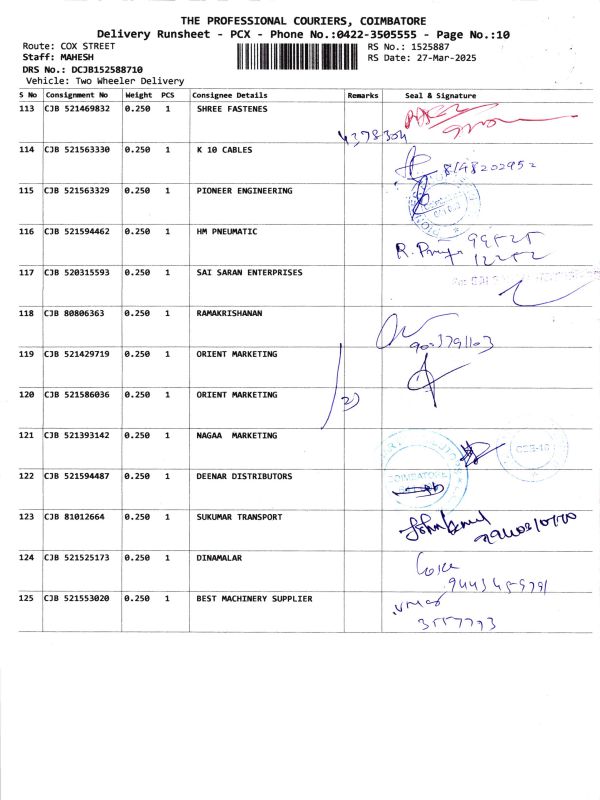 THE PROFESSIONAL COURIERS, COIMBATORE
Delivery Runsheet - PCX - Phone No.:0422-3505555 - Page No.:10
Route: COX STREET RS No.: 1525887
Staff: MAHESH RS Date: 27-Mar-2025
DRS No.: DCJB152588710
Vehicle: Two Wheeler Delivery
S No Consignment No Weight PCS Consignee Details Remarks Seal & Signature
113 CJB 521469832 0.250 1 SHREE FASTENES
4378304
114 CJB 521563330 0.250 1 K 10 CABLES
8148202952
115 CJB 521563329 0.250 1 PIONEER ENGINEERING
116 CJB 521594462 0.250 1 HM PNEUMATIC
R. Priya 99525
12252
117 CJB 520315593 0.250 1 SAI SARAN ENTERPRISES
118 CJB 80806363 0.250 1 RAMAKRISHANAN
9003791103
119 CJB 521429719 0.250 1 ORIENT MARKETING
120 CJB 521586036 0.250 1 ORIENT MARKETING
2)
121 CJB 521393142 0.250 1 NAGAA MARKETING
122 CJB 521594487 0.250 1 DEENAR DISTRIBUTORS
COIMBATORE
123 CJB 81012664 0.250 1 SUKUMAR TRANSPORT
124 CJB 521525173 0.250 1 DINAMALAR
125 CJB 521553020 0.250 1 BEST MACHINERY SUPPLIER
3557793